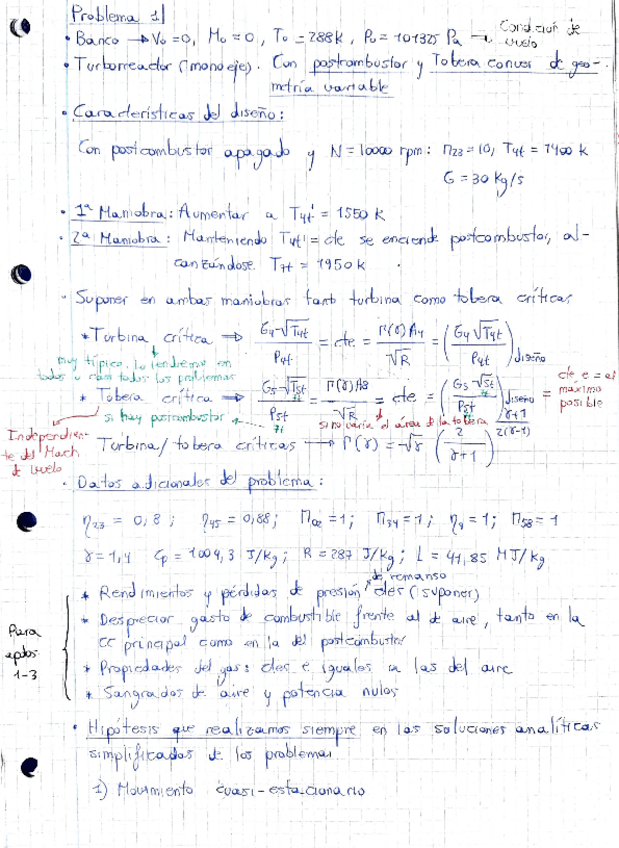 Problema 1|
• Banco → V₀=0, M₀=0, T₀=288k, P₀=101325 Pa → Condición de vuelo
• Turborreactor (monoeje). Con postcombustor y Tobera conver. de geo-
metría variable
• Características del diseño:
Con postcombustor apagado y N=10000 rpm: Π₂₃=10, T₄t=1400 k
G=30 kg/s
• 1ª Maniobra: Aumentar a T₄t' = 1550 k
• 2ª Maniobra: Manteniendo T₄t' = cte se enciende postcombustor, al-
canzándose T₇t = 1950 k
• Suponer en ambas maniobras tanto turbina como tobera críticas
* Turbina crítica ⇒ G₄√T₄t / P₄t = cte = Γ(γ)A₄ / √R = (G₄√T₄t / P₄t)diseño
muy típico, lo tendremos en
todos o casi todos los problemas
* Tobera crítica ⇒ G₅√T₅t / P₅t = Γ(γ)A8 / √R = cte = (G₅√₅t / P₅t)diseño = cte e = al máximo posible
si hay postcombustor → 7t
7t
si no varía el área de la tobera
Independien-
te del Mach
de vuelo
Turbina/tobera críticas → Γ(γ) = √γ (2 / γ+1)^(γ+1 / 2(γ-1))
• Datos adicionales del problema:
η₂₃ = 0,8 ; η₄₅ = 0,88; Π₀₂=1; Π₃₄=1; ηq=1; Π₅₈=1
γ=1,4 Cp=1004,3 J/kg; R=287 J/kg; L=41,85 MJ/kg
Para
aptdos
1-3
* Rendimientos y pérdidas de presión de remanso ctes (suponer)
* Despreciar gasto de combustible frente al de aire, tanto en la
CC principal como en la del postcombustor
* Propiedades del gas: ctes e iguales a las del aire
* Sangrados de aire y potencia nulos
• Hipótesis que realizamos siempre en las soluciones analíticas
simplificadas de los problemas
1) Movimiento cuasi-estacionario